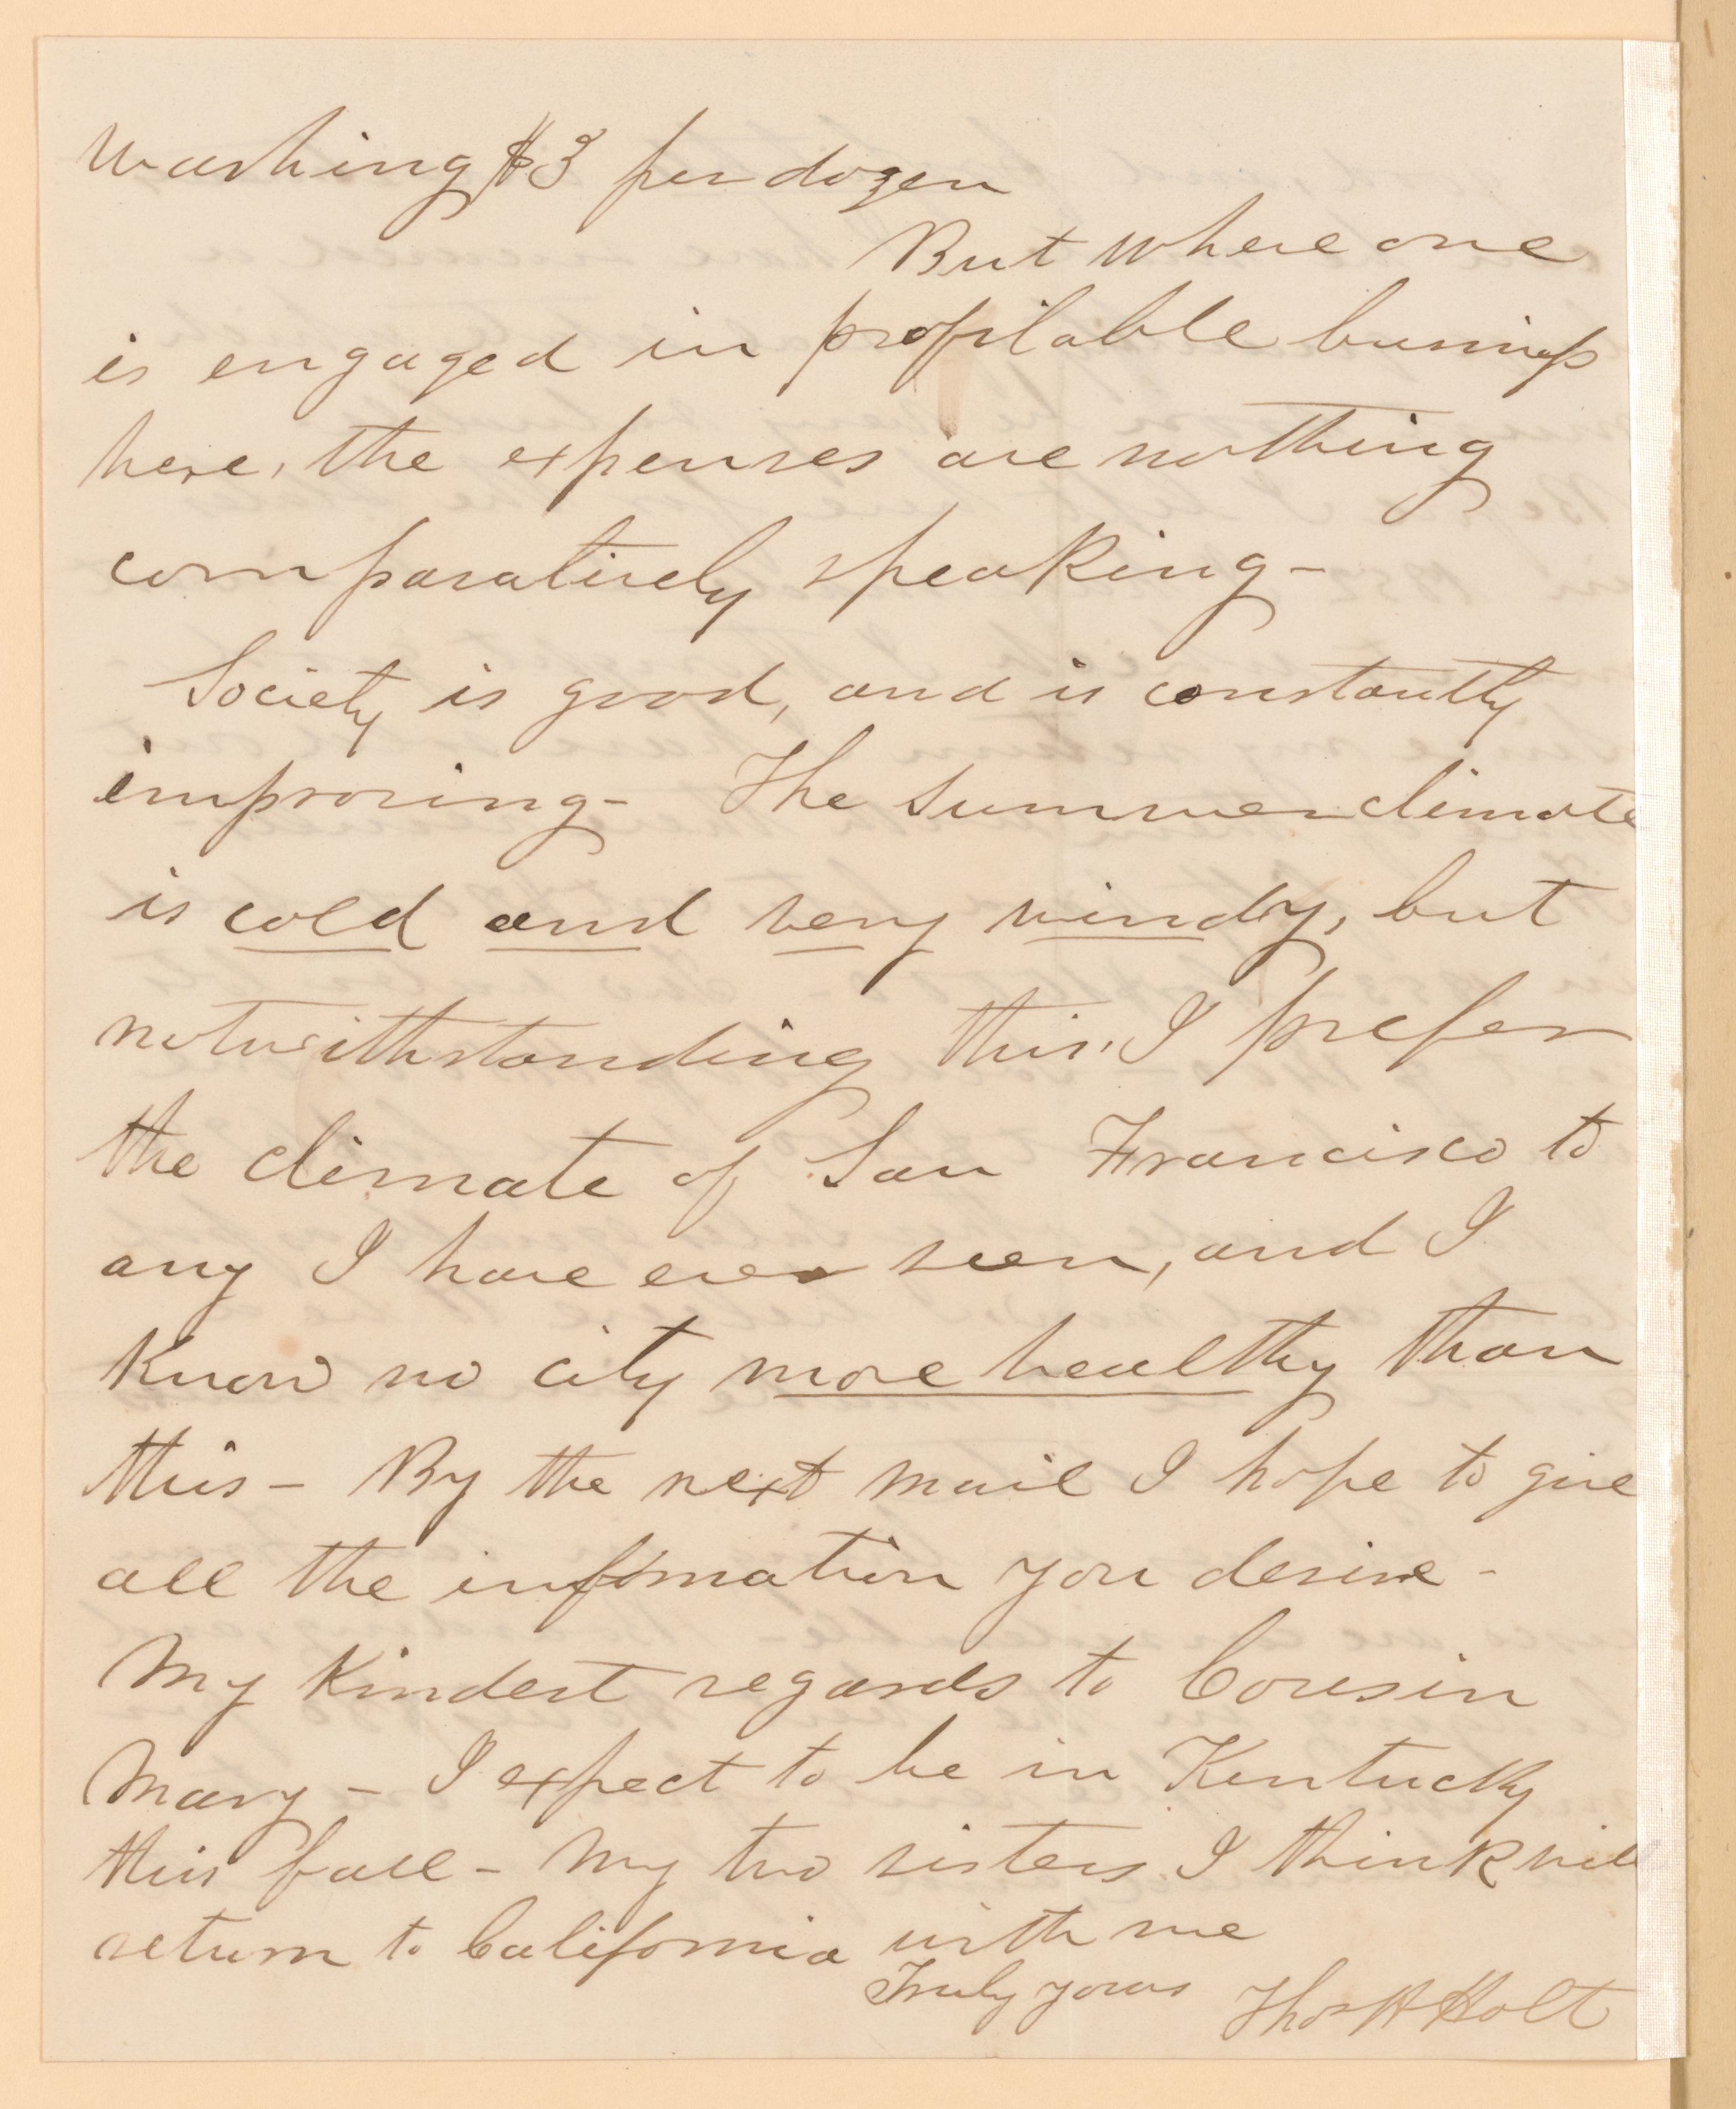 Washing $3 per dozen
But where one
is engaged in profitable business
here, the expenses are nothing
comparatively speaking-
Society is good, and is constantly
improving- The Summer climate
is cold and very windy, but
notwithstanding this, I prefer
the climate of San Francisco to
any I have ever seen, and I
know no city more healthy than
this- By the next mail I hope to give
all the infomation you desire-
My kindest regards to Cousin
Mary- I expect to be in Kentucky
this fall- My two sisters I think will
return to California with me
Truly yours Thos H Holt